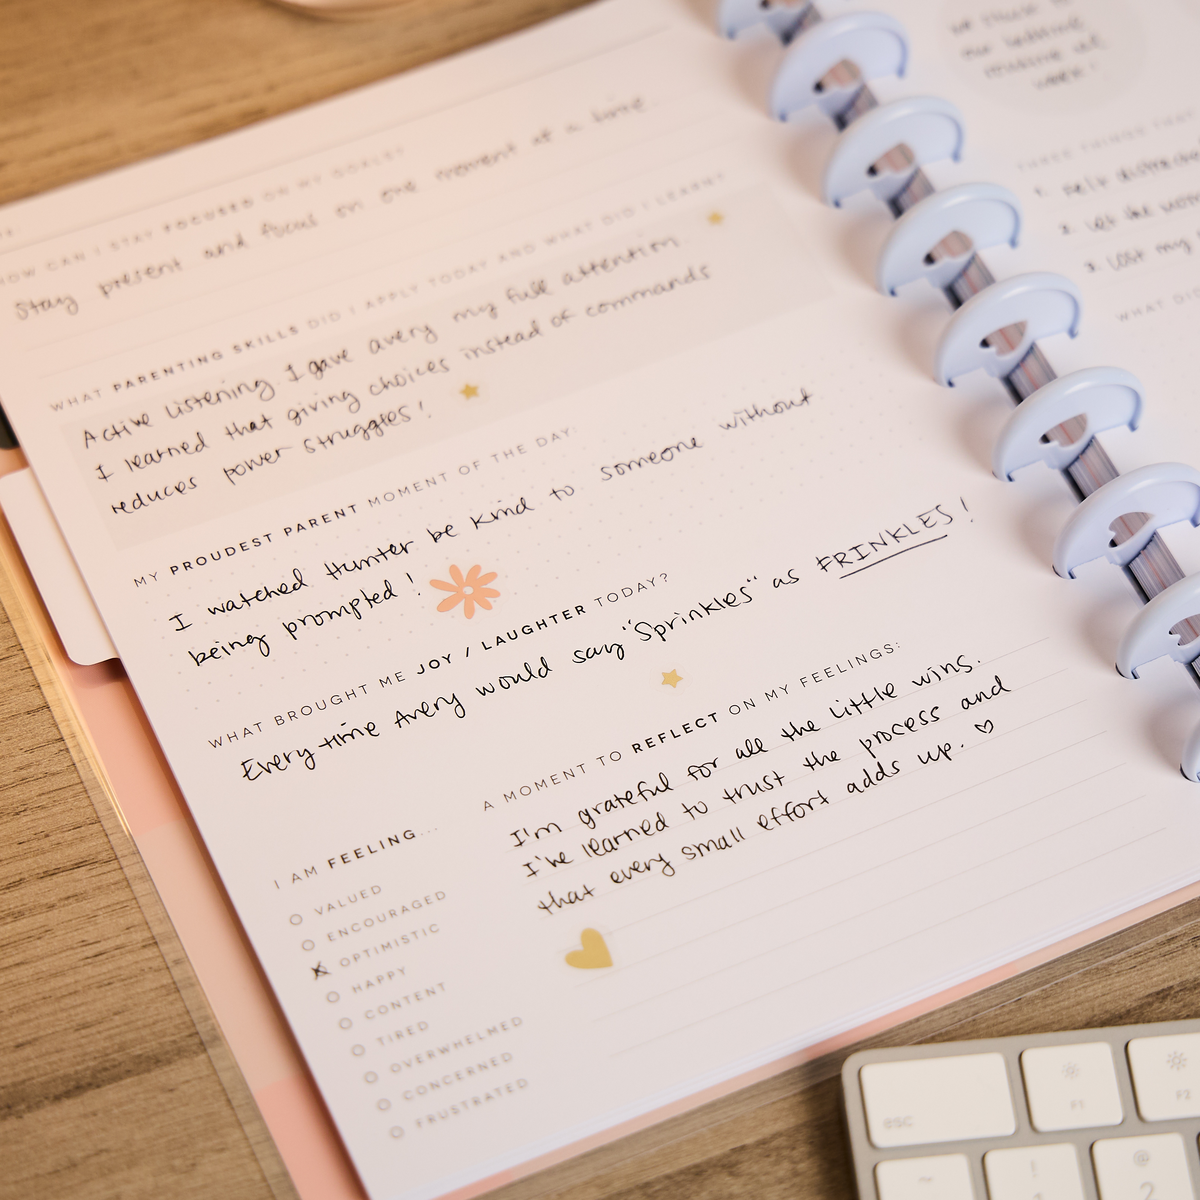 HOW CAN I STAY FOCUSED ON MY GOALS?
Stay present and focus on one moment at a time.
WHAT PARENTING SKILLS DID I APPLY TODAY AND WHAT DID I LEARN?
Active listening. I gave avery my full attention.
I learned that giving choices instead of commands
reduces power struggles!
MY PROUDEST PARENT MOMENT OF THE DAY:
I watched Hunter be kind to someone without
being prompted!
WHAT BROUGHT ME JOY / LAUGHTER TODAY?
Every time Avery would say "Sprinkles" as FRINKLES!
I AM FEELING...
VALUED
ENCOURAGED
OPTIMISTIC
HAPPY
CONTENT
TIRED
OVERWHELMED
CONCERNED
FRUSTRATED
A MOMENT TO REFLECT ON MY FEELINGS:
I'm grateful for all the little wins.
I've learned to trust the process and
that every small effort adds up. ♡
THREE THINGS THAT
1. self
2. let the
3. lost my
WHAT DID
esc
F1
F2
~
!
@
2